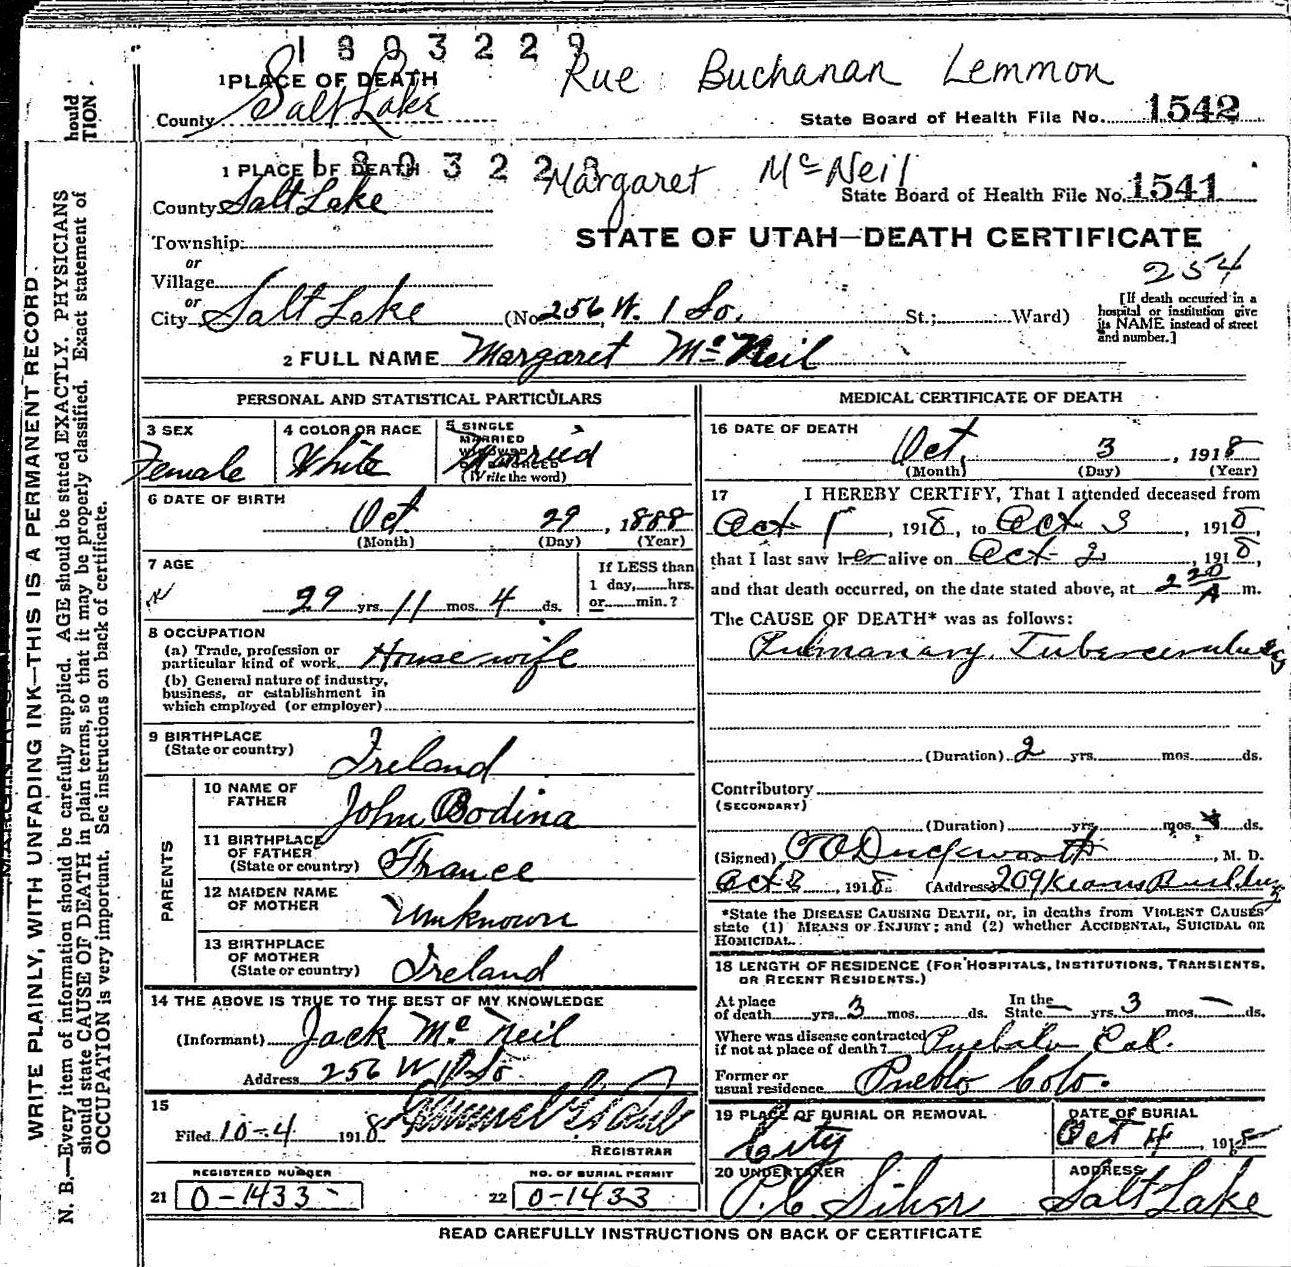 1803229
Rue Buchanan Lemmon
1 PLACE OF DEATH
County Salt Lake
State Board of Health File No. 1542
hould
TION.
180322
Margaret McNeil
1 PLACE OF DEATH
County Salt Lake
State Board of Health File No. 1541
Township
or
Village
or
City Salt Lake (No. 256 W. 1 So. St.; Ward)
STATE OF UTAH—DEATH CERTIFICATE
254
[If death occurred in a
hospital or institution give
its NAME instead of street
and number.]
2 FULL NAME Margaret McNeil
PERSONAL AND STATISTICAL PARTICULARS
3 SEX
Female
4 COLOR OR RACE
White
5 SINGLE
MARRIED
WIDOWED
OR DIVORCED
(Write the word)
Married
6 DATE OF BIRTH
Oct 29, 1888
(Month) (Day) (Year)
7 AGE
29 yrs. 11 mos. 4 ds.
If LESS than
1 day, hrs.
or min.?
8 OCCUPATION
(a) Trade, profession or
particular kind of work Housewife
(b) General nature of industry,
business, or establishment in
which employed (or employer)
9 BIRTHPLACE
(State or country) Ireland
PARENTS
10 NAME OF
FATHER John Bodina
11 BIRTHPLACE
OF FATHER
(State or country) France
12 MAIDEN NAME
OF MOTHER Unknown
13 BIRTHPLACE
OF MOTHER
(State or country) Ireland
14 THE ABOVE IS TRUE TO THE BEST OF MY KNOWLEDGE
(Informant) Jack McNeil
Address 256 W 1 So
15
Filed 10-4 1918
REGISTRAR
REGISTERED NUMBER
21 0-1433
NO. OF BURIAL PERMIT
22 0-1433
MEDICAL CERTIFICATE OF DEATH
16 DATE OF DEATH
Oct. 3, 1918
(Month) (Day) (Year)
17 I HEREBY CERTIFY, That I attended deceased from
Oct 1, 1918, to Oct 3, 1918,
that I last saw her alive on Oct 2, 1918,
and that death occurred, on the date stated above, at 2 20 A m.
The CAUSE OF DEATH* was as follows:
Pulmanary Tuberculosis
(Duration) 2 yrs. mos. ds.
Contributory
(SECONDARY)
(Duration) yrs. mos. ds.
(Signed) Duckworth, M. D.
Oct 3, 1918. (Address) 209 Kearns Building
*State the DISEASE CAUSING DEATH, or, in deaths from VIOLENT CAUSES
state (1) MEANS OF INJURY; and (2) whether ACCIDENTAL, SUICIDAL OR
HOMICIDAL.
18 LENGTH OF RESIDENCE (FOR HOSPITALS, INSTITUTIONS, TRANSIENTS,
OR RECENT RESIDENTS.)
At place
of death yrs. 3 mos. ds. In the
State — yrs. 3 — ds.
Where was disease contracted
if not at place of death? Pueblo Col.
Former or
usual residence Pueblo Colo.
19 PLACE OF BURIAL OR REMOVAL
City
DATE OF BURIAL
Oct 4, 1918
20 UNDERTAKER
ADDRESS
Salt Lake
READ CAREFULLY INSTRUCTIONS ON BACK OF CERTIFICATE
WRITE PLAINLY, WITH UNFADING INK—THIS IS A PERMANENT RECORD.
N. B.—Every item of information should be carefully supplied. AGE should be stated EXACTLY. PHYSICIANS
should state CAUSE OF DEATH in plain terms, so that it may be properly classified. Exact statement of
OCCUPATION is very important. See instructions on back of certificate.